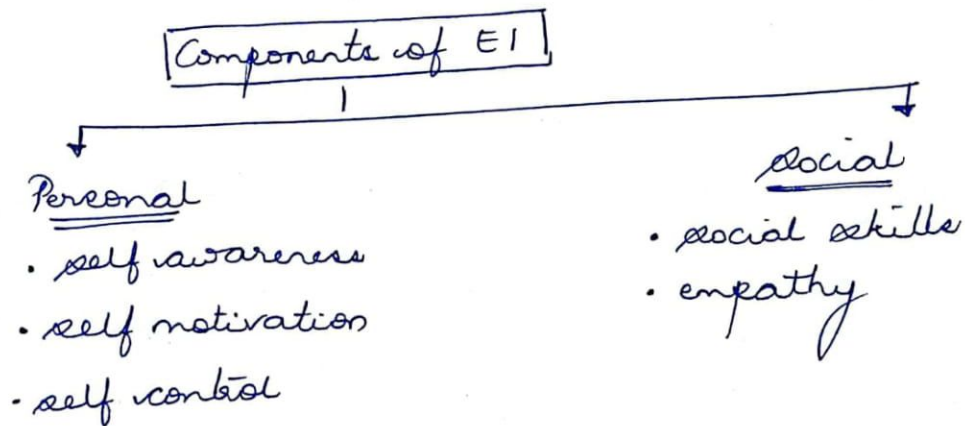 Components of EI
Personal
• self awareness
• self motivation
• self control
social
• social skills
• empathy